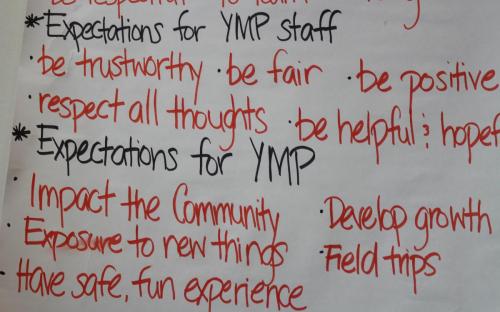 be respectful to learn
*Expectations for YMP staff
·be trustworthy ·be fair ·be positive
·respect all thoughts ·be helpful & hopef
*Expectations for YMP
·Impact the Community ·Develop growth
·Exposure to new things ·Field trips
·Have safe, fun experience